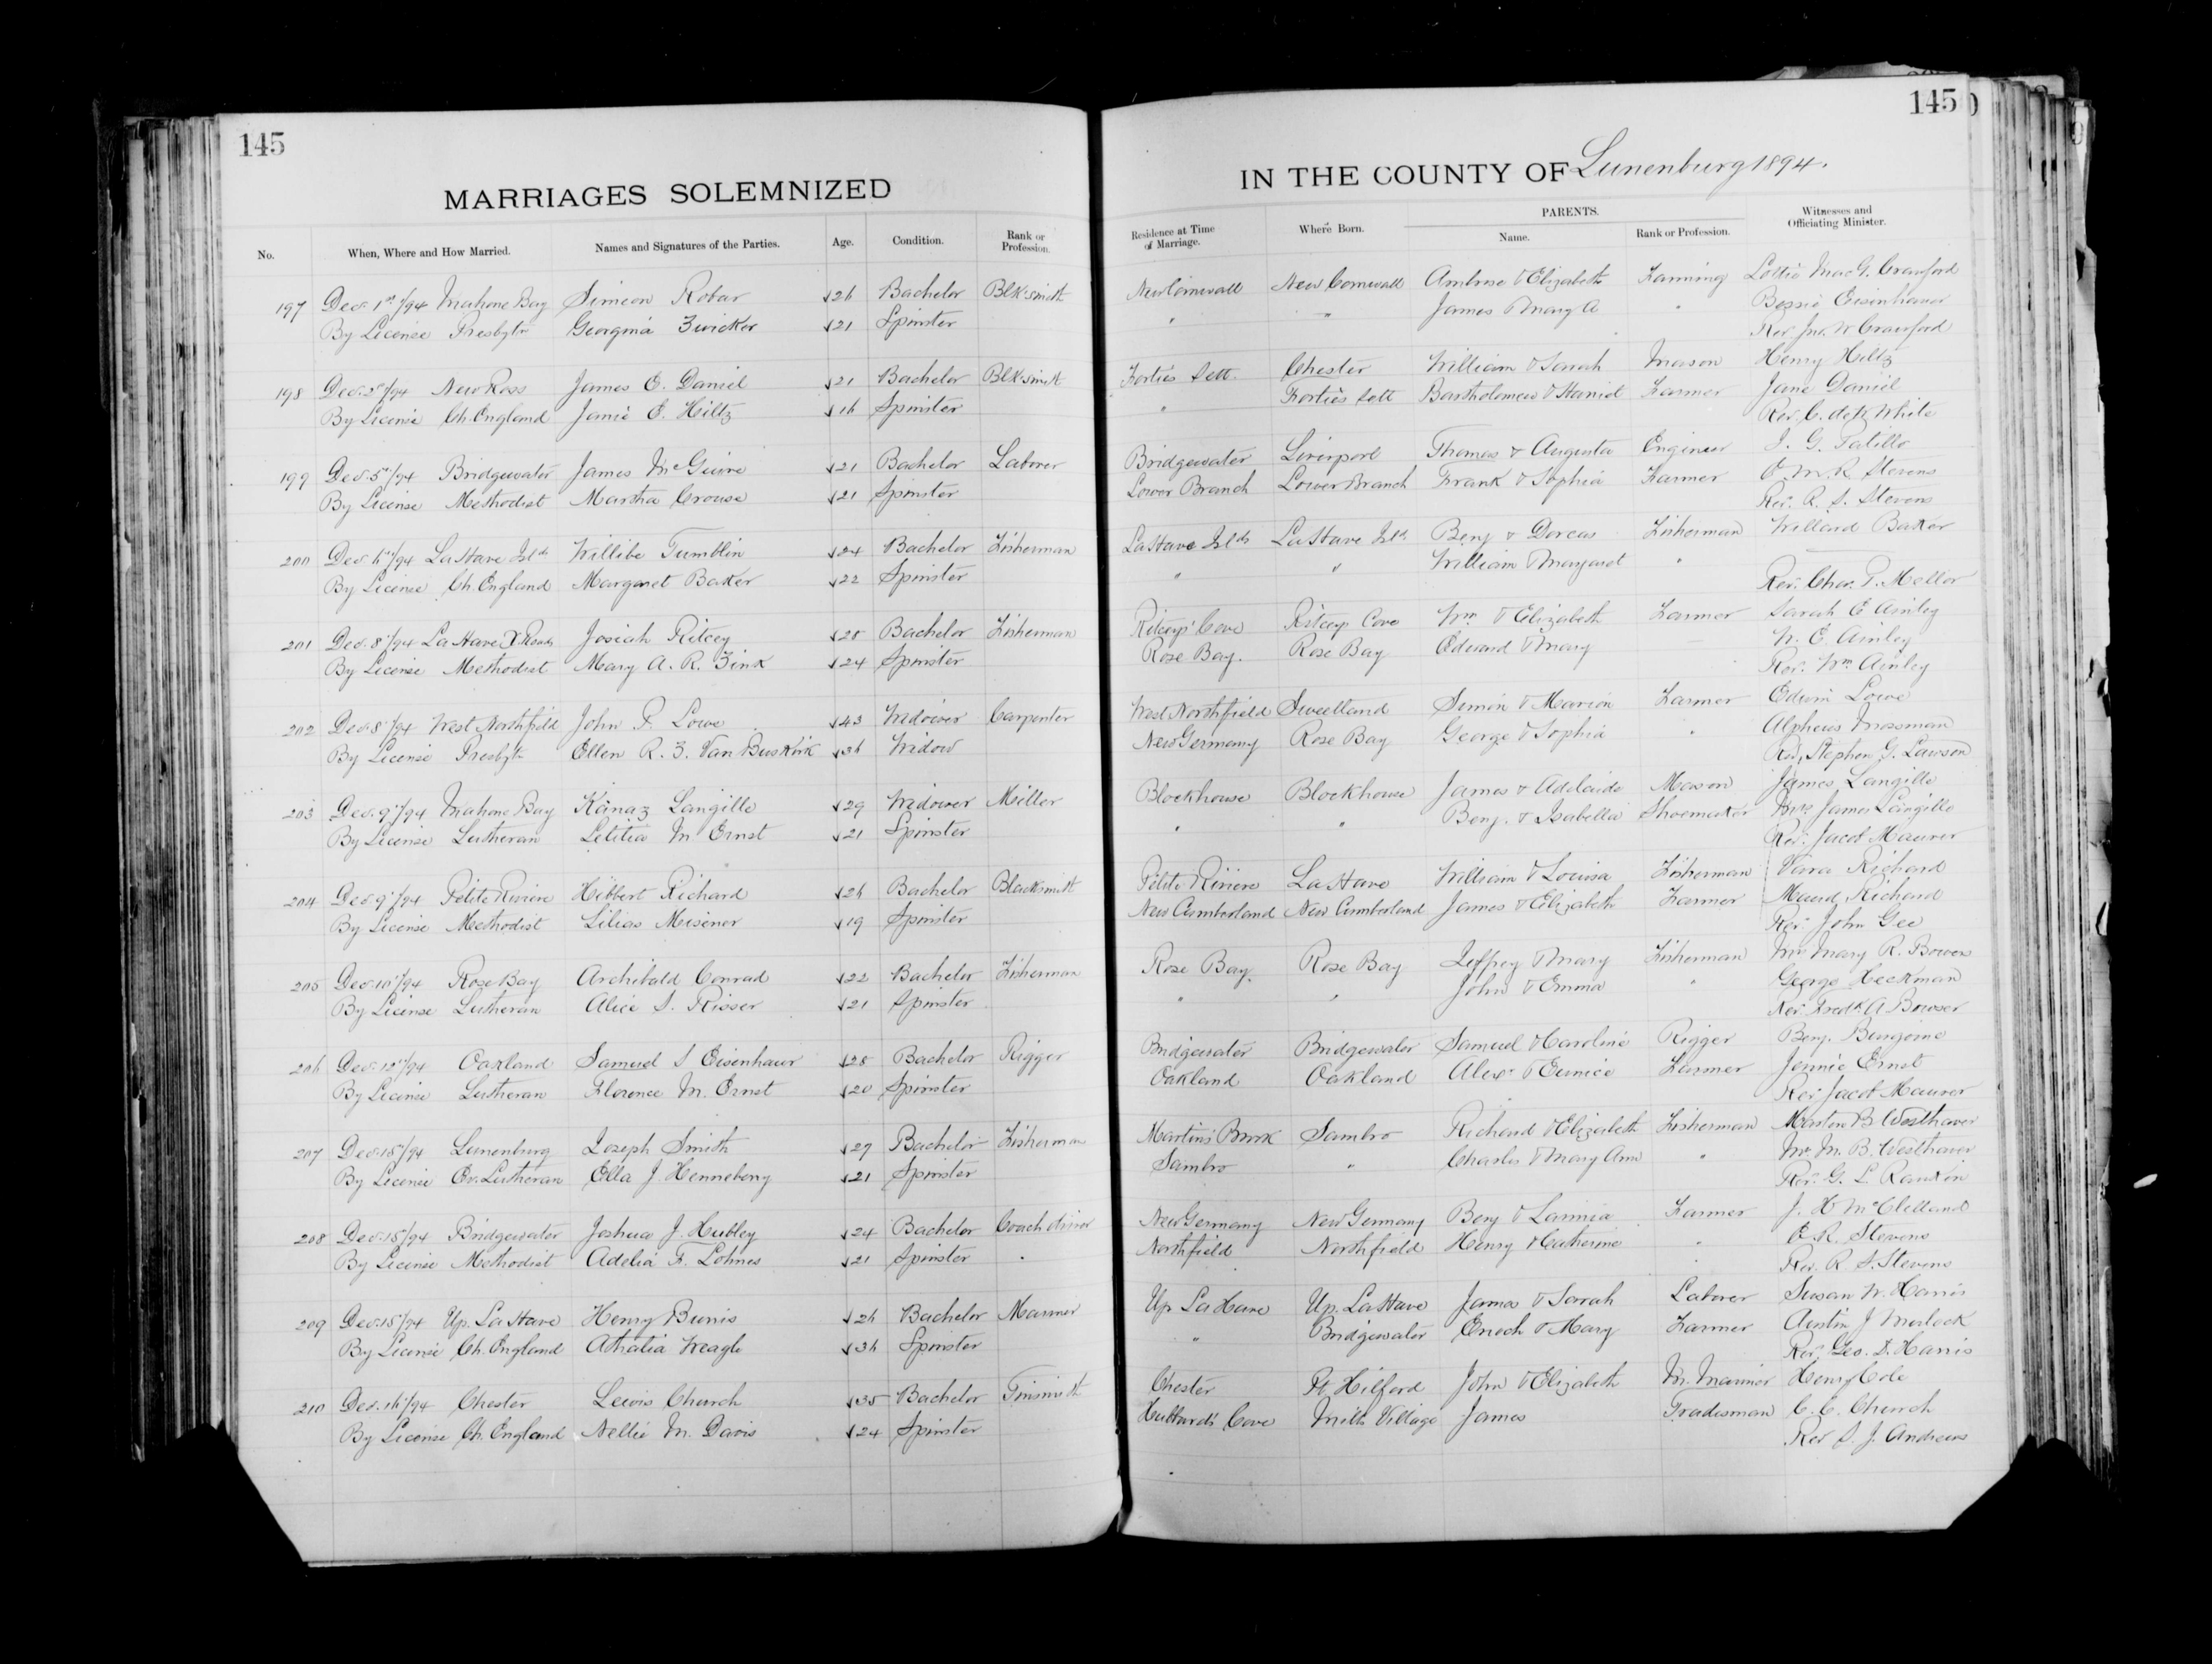 145
145
MARRIAGES SOLEMNIZED
IN THE COUNTY OF Lunenburg 1894.
No. When, Where and How Married. Names and Signatures of the Parties. Age. Condition. Rank or Profession. Residence at Time of Marriage. Where Born. PARENTS. Name. Rank or Profession. Witnesses and Officiating Minister.
197 Dec. 1st/94 Mahone Bay Simeon Robar 26 Bachelor Blksmith New Cornwall New Cornwall Ambrose & Elizabeth Farming Lottie MacG. Crawford
By License Presbytn Georgina Zwicker 21 Spinster " " James & Mary A " Bessie Eisenhauer
Rev. Jno. W Crawford
198 Dec. 2/94 New Ross James E. Daniel 21 Bachelor Blksmith Forties Sett. Chester William & Sarah Mason Henry Hiltz
By License Ch. England Janie E. Hiltz 16 Spinster " Forties Sett Bartholomew & Harriet Farmer Jane Daniel
Rev. C. deW White
199 Dec. 5/94 Bridgewater James McGuire 21 Bachelor Laborer Bridgewater Liverpool Thomas & Augusta Engineer J. G. Patillo
By License Methodist Martha Crouse 21 Spinster Lower Branch Lower Branch Frank & Sophia Farmer M. R. Stevens
Rev. R. S. Stevens
200 Dec. 6/94 LaHave Isld Willibe Tumblin 24 Bachelor Fisherman LaHave Islds LaHave Isls Benj & Dorcas Fisherman Willard Baker
By License Ch. England Margaret Baker 22 Spinster " " William & Margaret "
Rev. Chas. P. Mellor
201 Dec. 8/94 La Have X Roads Josiah Ritcey 28 Bachelor Fisherman Ritcey's Cove Ritceys Cove Wm & Elizabeth Farmer Sarah E Ainley
By License Methodist Mary A. R. Zink 24 Spinster Rose Bay. Rose Bay Edward & Mary W. E. Ainley
Rev. Wm Ainley
202 Dec. 8/94 West Northfield John F. Lowe 43 Widower Carpenter West Northfield Sweetland Simon & Marion Farmer Edwin Lowe
By License Presbytn Ellen R. Z. Van Buskirk 36 Widow New Germany Rose Bay George & Sophia " Alpheus Mossman
Rev. Stephen G. Lawson
203 Dec. 9/94 Mahone Bay Kanaz Langille 29 Widower Miller Blockhouse Blockhouse James & Adelaide Mason James Langille
By License Lutheran Letitia M Ernst 21 Spinster " " Benj. & Isabella Shoemaker Mrs James Langille
Rev. Jacob Maurer
204 Dec. 9/94 Petite Riviere Hibbert Richard 26 Bachelor Blacksmith Petite Riviere LaHave William & Louisa Fisherman Vara Richard
By License Methodist Lilias Misener 19 Spinster New Cumberland New Cumberland James & Elizabeth Farmer Maud Richard
Rev. John Gee
205 Dec. 10/94 Rose Bay Archibald Conrad 22 Bachelor Fisherman Rose Bay. Rose Bay Jeffrey & Mary Fisherman Mrs Mary R. Bowers
By License Lutheran Alice S. Risser 21 Spinster " " John & Emma " George Heckman
Rev. Fredk A Bowser
206 Dec. 12/94 Oakland Samuel S Eisenhauer 28 Bachelor Rigger Bridgewater Bridgewater Samuel & Caroline Rigger Benj. Burgoine
By License Lutheran Florence M. Ernst 20 Spinster Oakland Oakland Alexr & Eunice Farmer Jennie Ernst
Rev. Jacob Maurer
207 Dec. 15/94 Lunenburg Joseph Smith 27 Bachelor Fisherman Martin's Brook Sambro Richard & Elizabeth Fisherman Marton B Westhaver
By License Ev. Lutheran Ella J. Henneberry 21 Spinster Sambro " Charles & Mary Ann " Mrs M. B. Westhaver
Rev. G. L. Rankin
208 Dec. 15/94 Bridgewater Joshua J. Hubley 24 Bachelor Coach driver New Germany New Germany Benj & Lavinia Farmer J. H McClelland
By License Methodist Adelia F. Lohnes 21 Spinster Northfield Northfield Henry & Catherine " E. R. Stevens
Rev. R S. Stevens
209 Dec. 15/94 Up. LaHave Henry Burns 26 Bachelor Mariner Up LaHave Up. LaHave James & Sarah Laborer Susan W. Harris
By License Ch. England Athalia Weagle 36 Spinster " Bridgewater Enoch & Mary Farmer Austin J Morlock
Rev. Geo. D. Harris
210 Dec. 16/94 Chester Lewis Church 35 Bachelor Tinsmith Chester Pt Hilford John & Elizabeth M. Mariner Henry Cole
By License Ch. England Nellie M. Davis 24 Spinster Hubbards Cove Mills Village James Tradesman C. C. Church
Rev S. J. Andrews